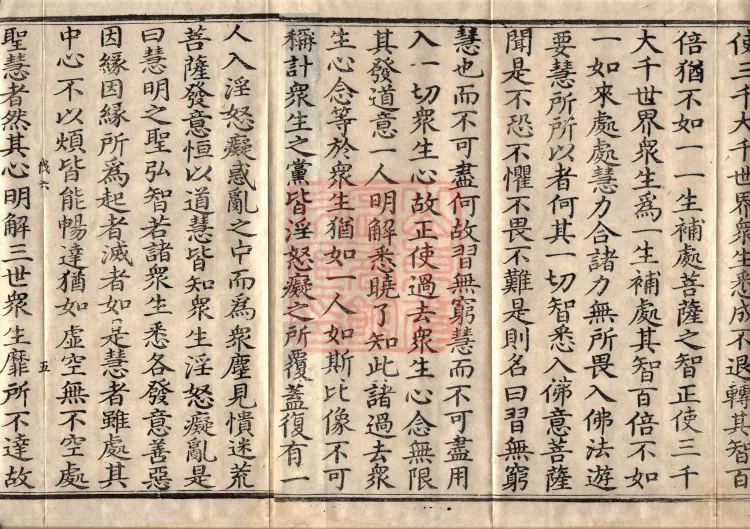 使三千大千世界衆生悉成不退轉其智百
倍猶不如一一生補處菩薩之智正使三千
大千世界衆生爲一生補處其智百倍不如
一如來處處慧力合諸力無所畏入佛法遊
要慧所所以者何其一切智悉入佛意菩薩
聞是不恐不懼不畏不難是則名曰習無窮
慧也而不可盡何故習無窮慧而不可盡用
入一切衆生心故正使過去衆生心念無限
其發道意一人明解悉曉了知此諸過去衆
生心念等於衆生猶如一人如斯比像不可
稱計衆生之黨皆淫怒癡之所覆蓋復有一
人入淫怒癡惑亂之中而爲衆塵見憒迷荒
菩薩發意恒以道慧皆知衆生淫怒癡亂是
曰慧明之聖弘智若諸衆生悉各發意善惡
因緣因緣所爲起者滅者如是慧者雖處其
中心不以煩皆能暢達猶如虛空無不空處
伐六
五
聖慧者然其心明解三世衆生靡所不達故